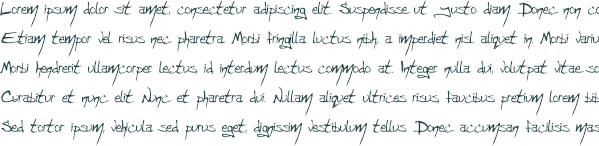 Lorem ipsum dolor sit amet, consectetur adipiscing elit. Suspendisse ut justo diam. Donec non co
Etiam tempor vel risus nec pharetra. Morbi fringilla luctus nibh, a imperdiet nisl aliquet in. Morbi variu
Morbi hendrerit ullamcorper lectus, id interdum lectus commodo at. Integer nulla dui, volutpat vitae so
Curabitur et nunc elit. Nunc et pharetra dui. Nullam aliquet ultrices risus, faucibus pretium lorem bib
Sed tortor ipsum, vehicula sed purus eget, dignissim vestibulum tellus. Donec accumsan facilisis mas